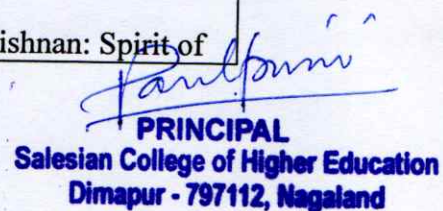 ishnan: Spirit of
PRINCIPAL
Salesian College of Higher Education
Dimapur - 797112, Nagaland